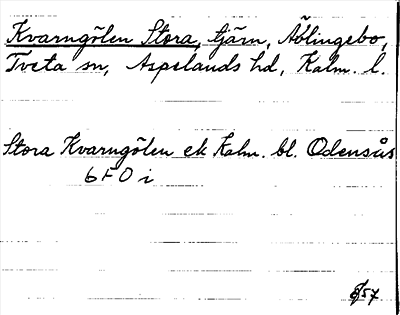 Kvarngölen Stora, tjärn, Äblingebo,
Tveta sn, Aspelands hd, Kalm. l.
Stora Kvarngölen ek Kalm. bl. Odensås
6F0i
8/57